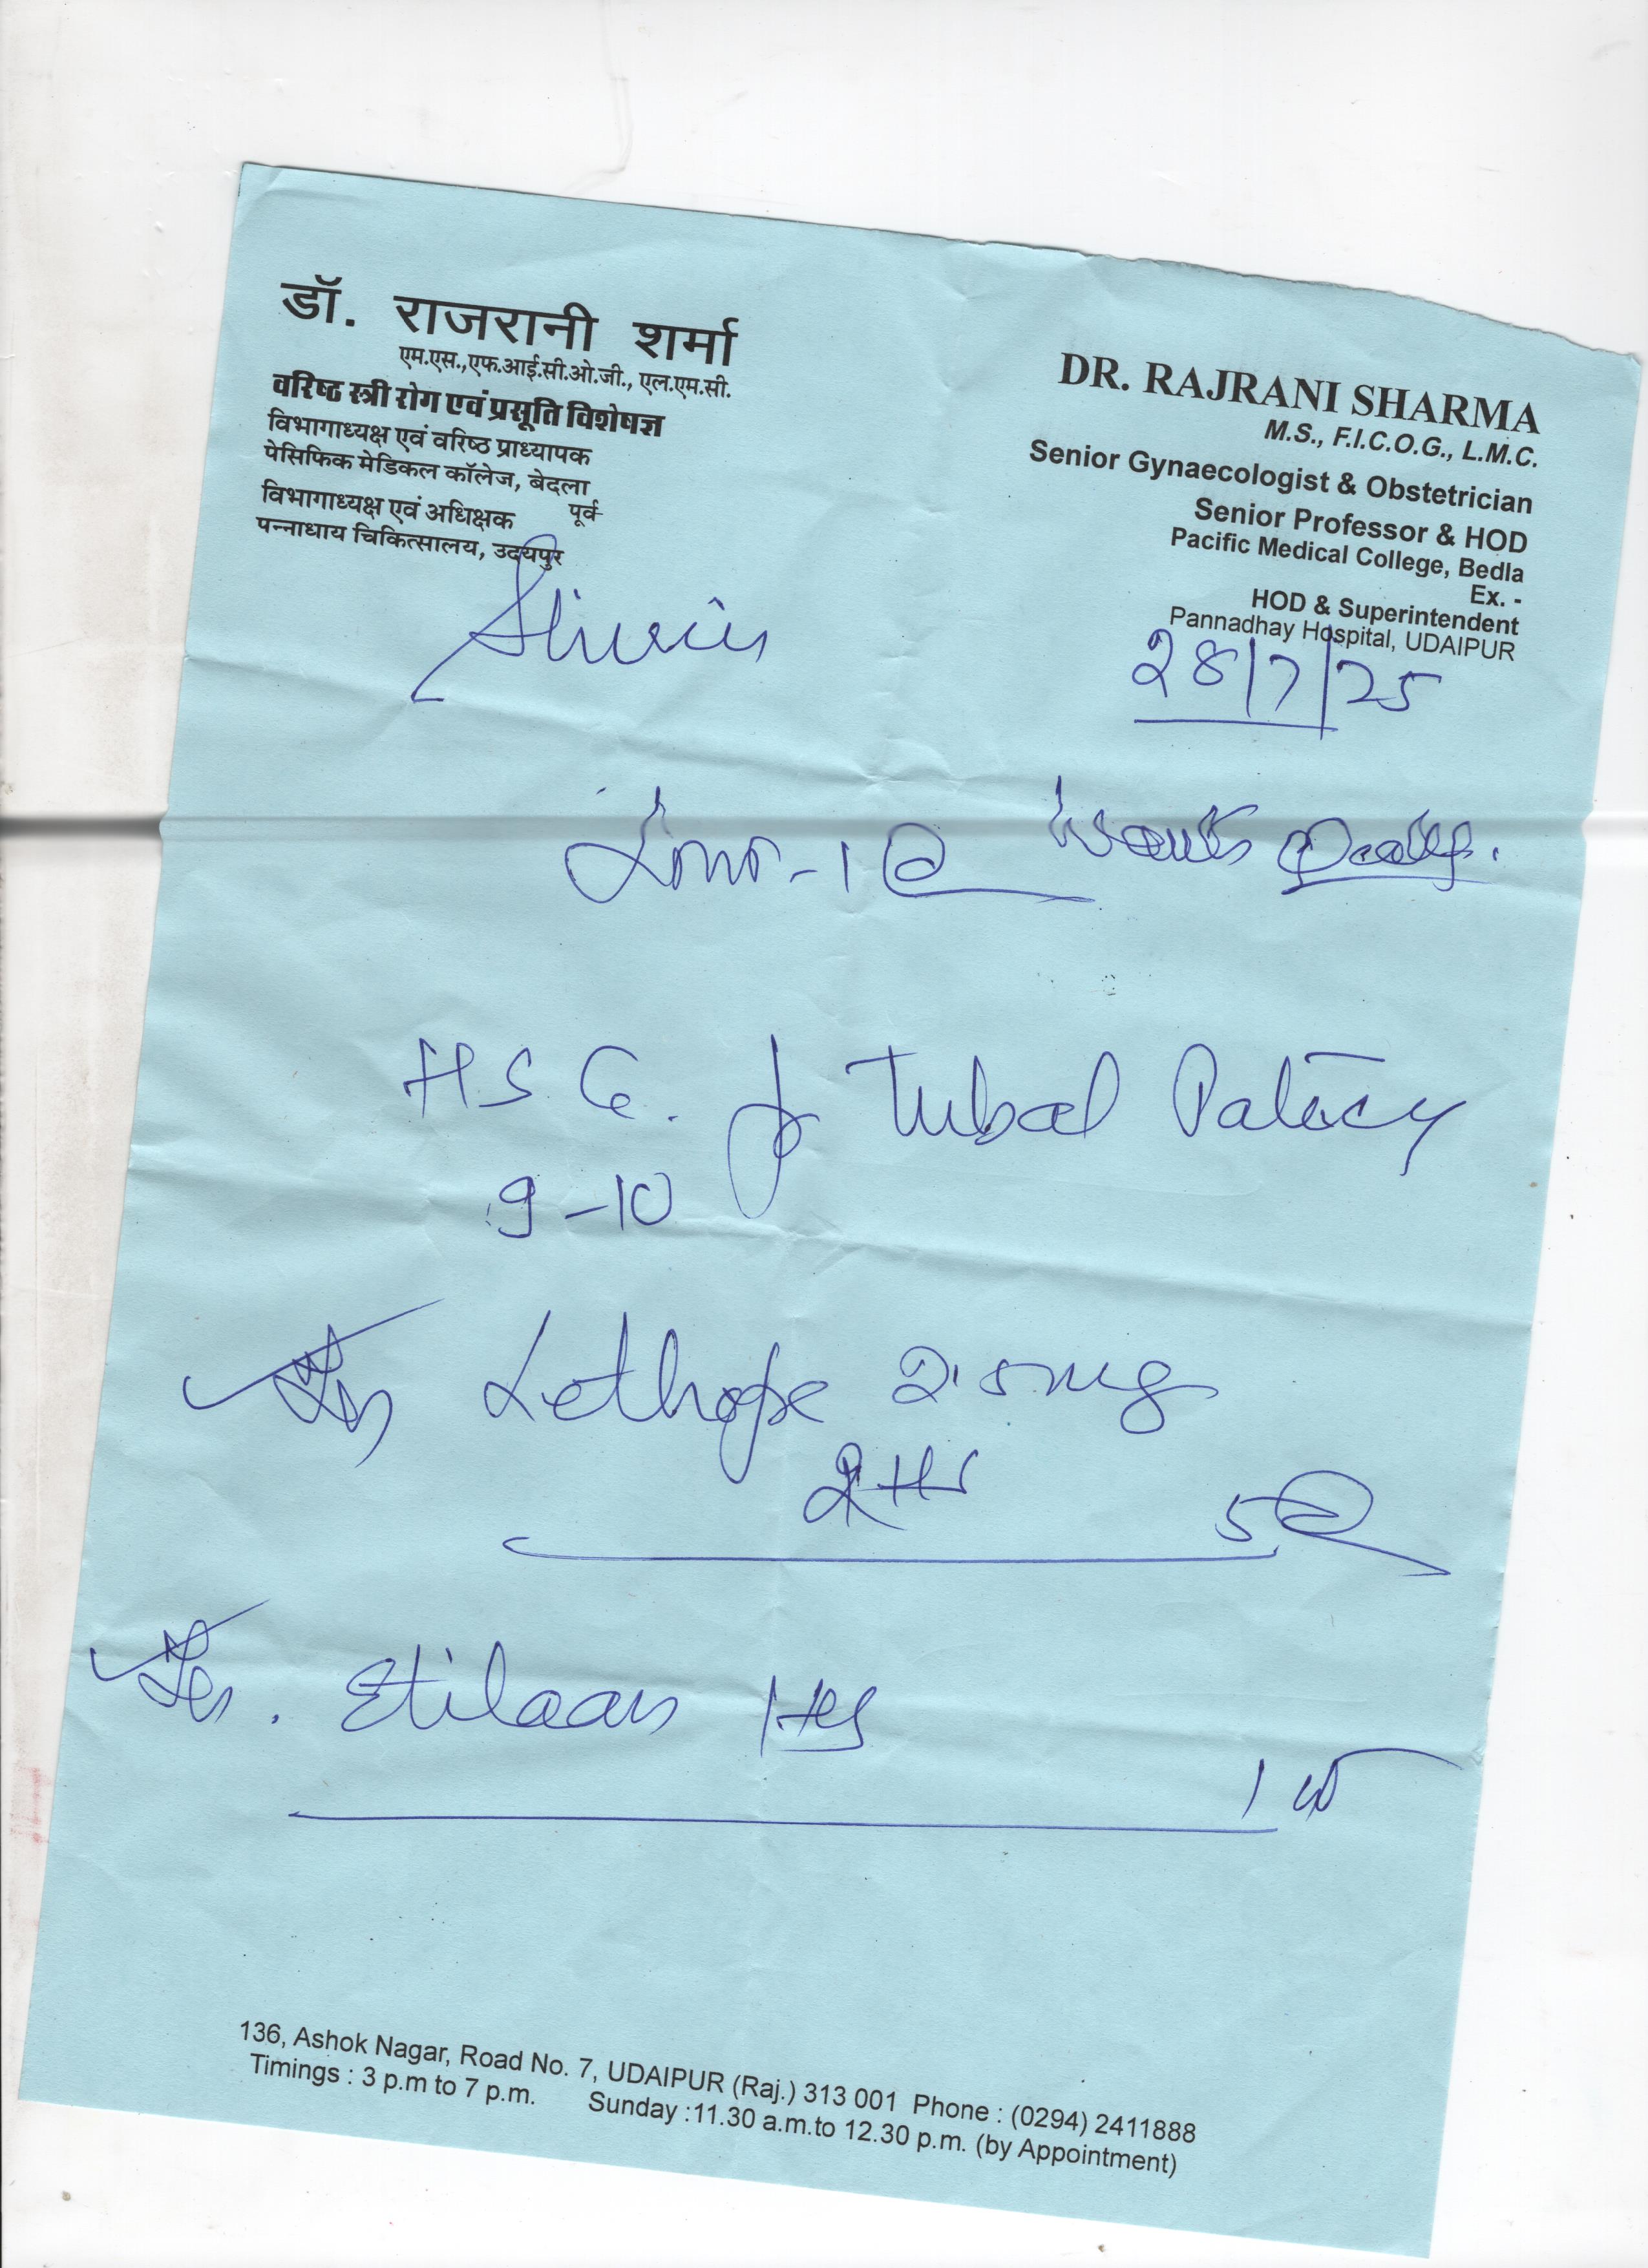 डॉ. राजरानी शर्मा
एम.एस.,एफ.आई.सी.ओ.जी., एल.एम.सी.
वरिष्ठ स्त्री रोग एवं प्रसूति विशेषज्ञ
विभागाध्यक्ष एवं वरिष्ठ प्राध्यापक
पेसिफिक मेडिकल कॉलेज, बेदला
पूर्व
विभागाध्यक्ष एवं अधिक्षक
पन्नाधाय चिकित्सालय, उदयपुर
DR. RAJRANI SHARMA
M.S., F.I.C.O.G., L.M.C.
Senior Gynaecologist & Obstetrician
Senior Professor & HOD
Pacific Medical College, Bedla
Ex. -
HOD & Superintendent
Pannadhay Hospital, UDAIPUR
28/7/25
Wants
H.S.G. Tubal Patency
9-10
Lethope 2.5mg
Etilaam HS
136, Ashok Nagar, Road No. 7, UDAIPUR (Raj.) 313 001 Phone : (0294) 2411888
Timings : 3 p.m to 7 p.m. Sunday :11.30 a.m.to 12.30 p.m. (by Appointment)